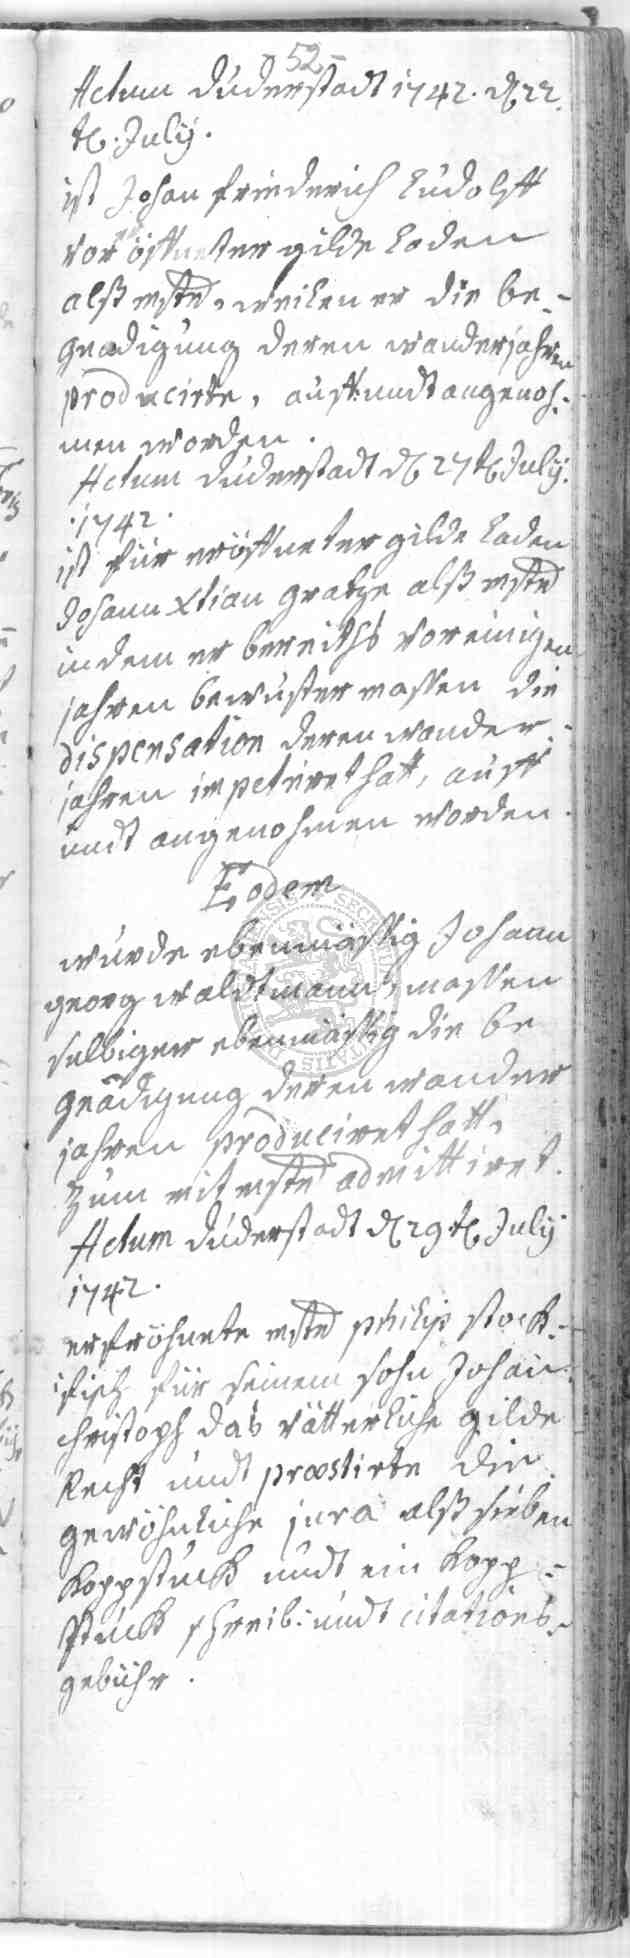 52
Actum Duderstadt 1742. d 22
t. July.
ist Johan Friederich Ludolff
vor eröffneter gilde Laden
alß mstr, weilen er die be-
gnadigung deren wanderjahren
producirte, auff undt angenoh-
men worden.
Actum Duderstadt d 27 t July
1742.
ist für eröffneter gilde Laden
Johann Xtian gratze alß mstr
indem er bereiths vor einigen
jahren bewuster massen die
dispensation deren wander-
jahren impetriret hatt, auff
undt angenohmen worden.
Eodem
wurde ebenmässig Johann
georg waldtmann, massen
selbiger ebenmässig die be
gnädigung deren wander
jahren produciret hatt,
zum mitmstr admittiret.
Actum Duderstadt d 29 t July
1742.
erfröhnete mstr philip stock-
fisch für seinem sohn Johan
christoph das vätterliche gilde
Recht undt praestirte die
gewöhnliche jura alß sieben
Koppstück undt ein Kopp-
stück schreib- undt citations-
gebühr.